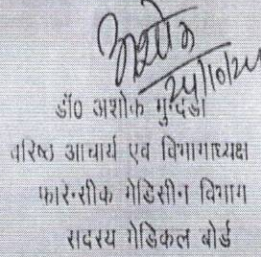 अशोक
24/10/24
डॉ0 अशोक मुन्दडा
वरिष्ठ आचार्य एवं विभागाध्यक्ष
फारेन्सीक मेडिसीन विभाग
सदस्य मेडिकल बोर्ड